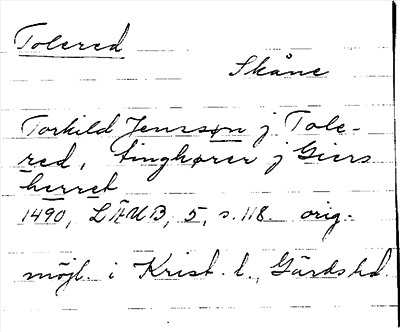 Tolered
Skåne
Torkild Jenssøn j Tole-
red, tinghører j Giers
herret
1490, LÄUB, 5, s. 118. orig.
möjl. i Krist. l., Gärds hd.